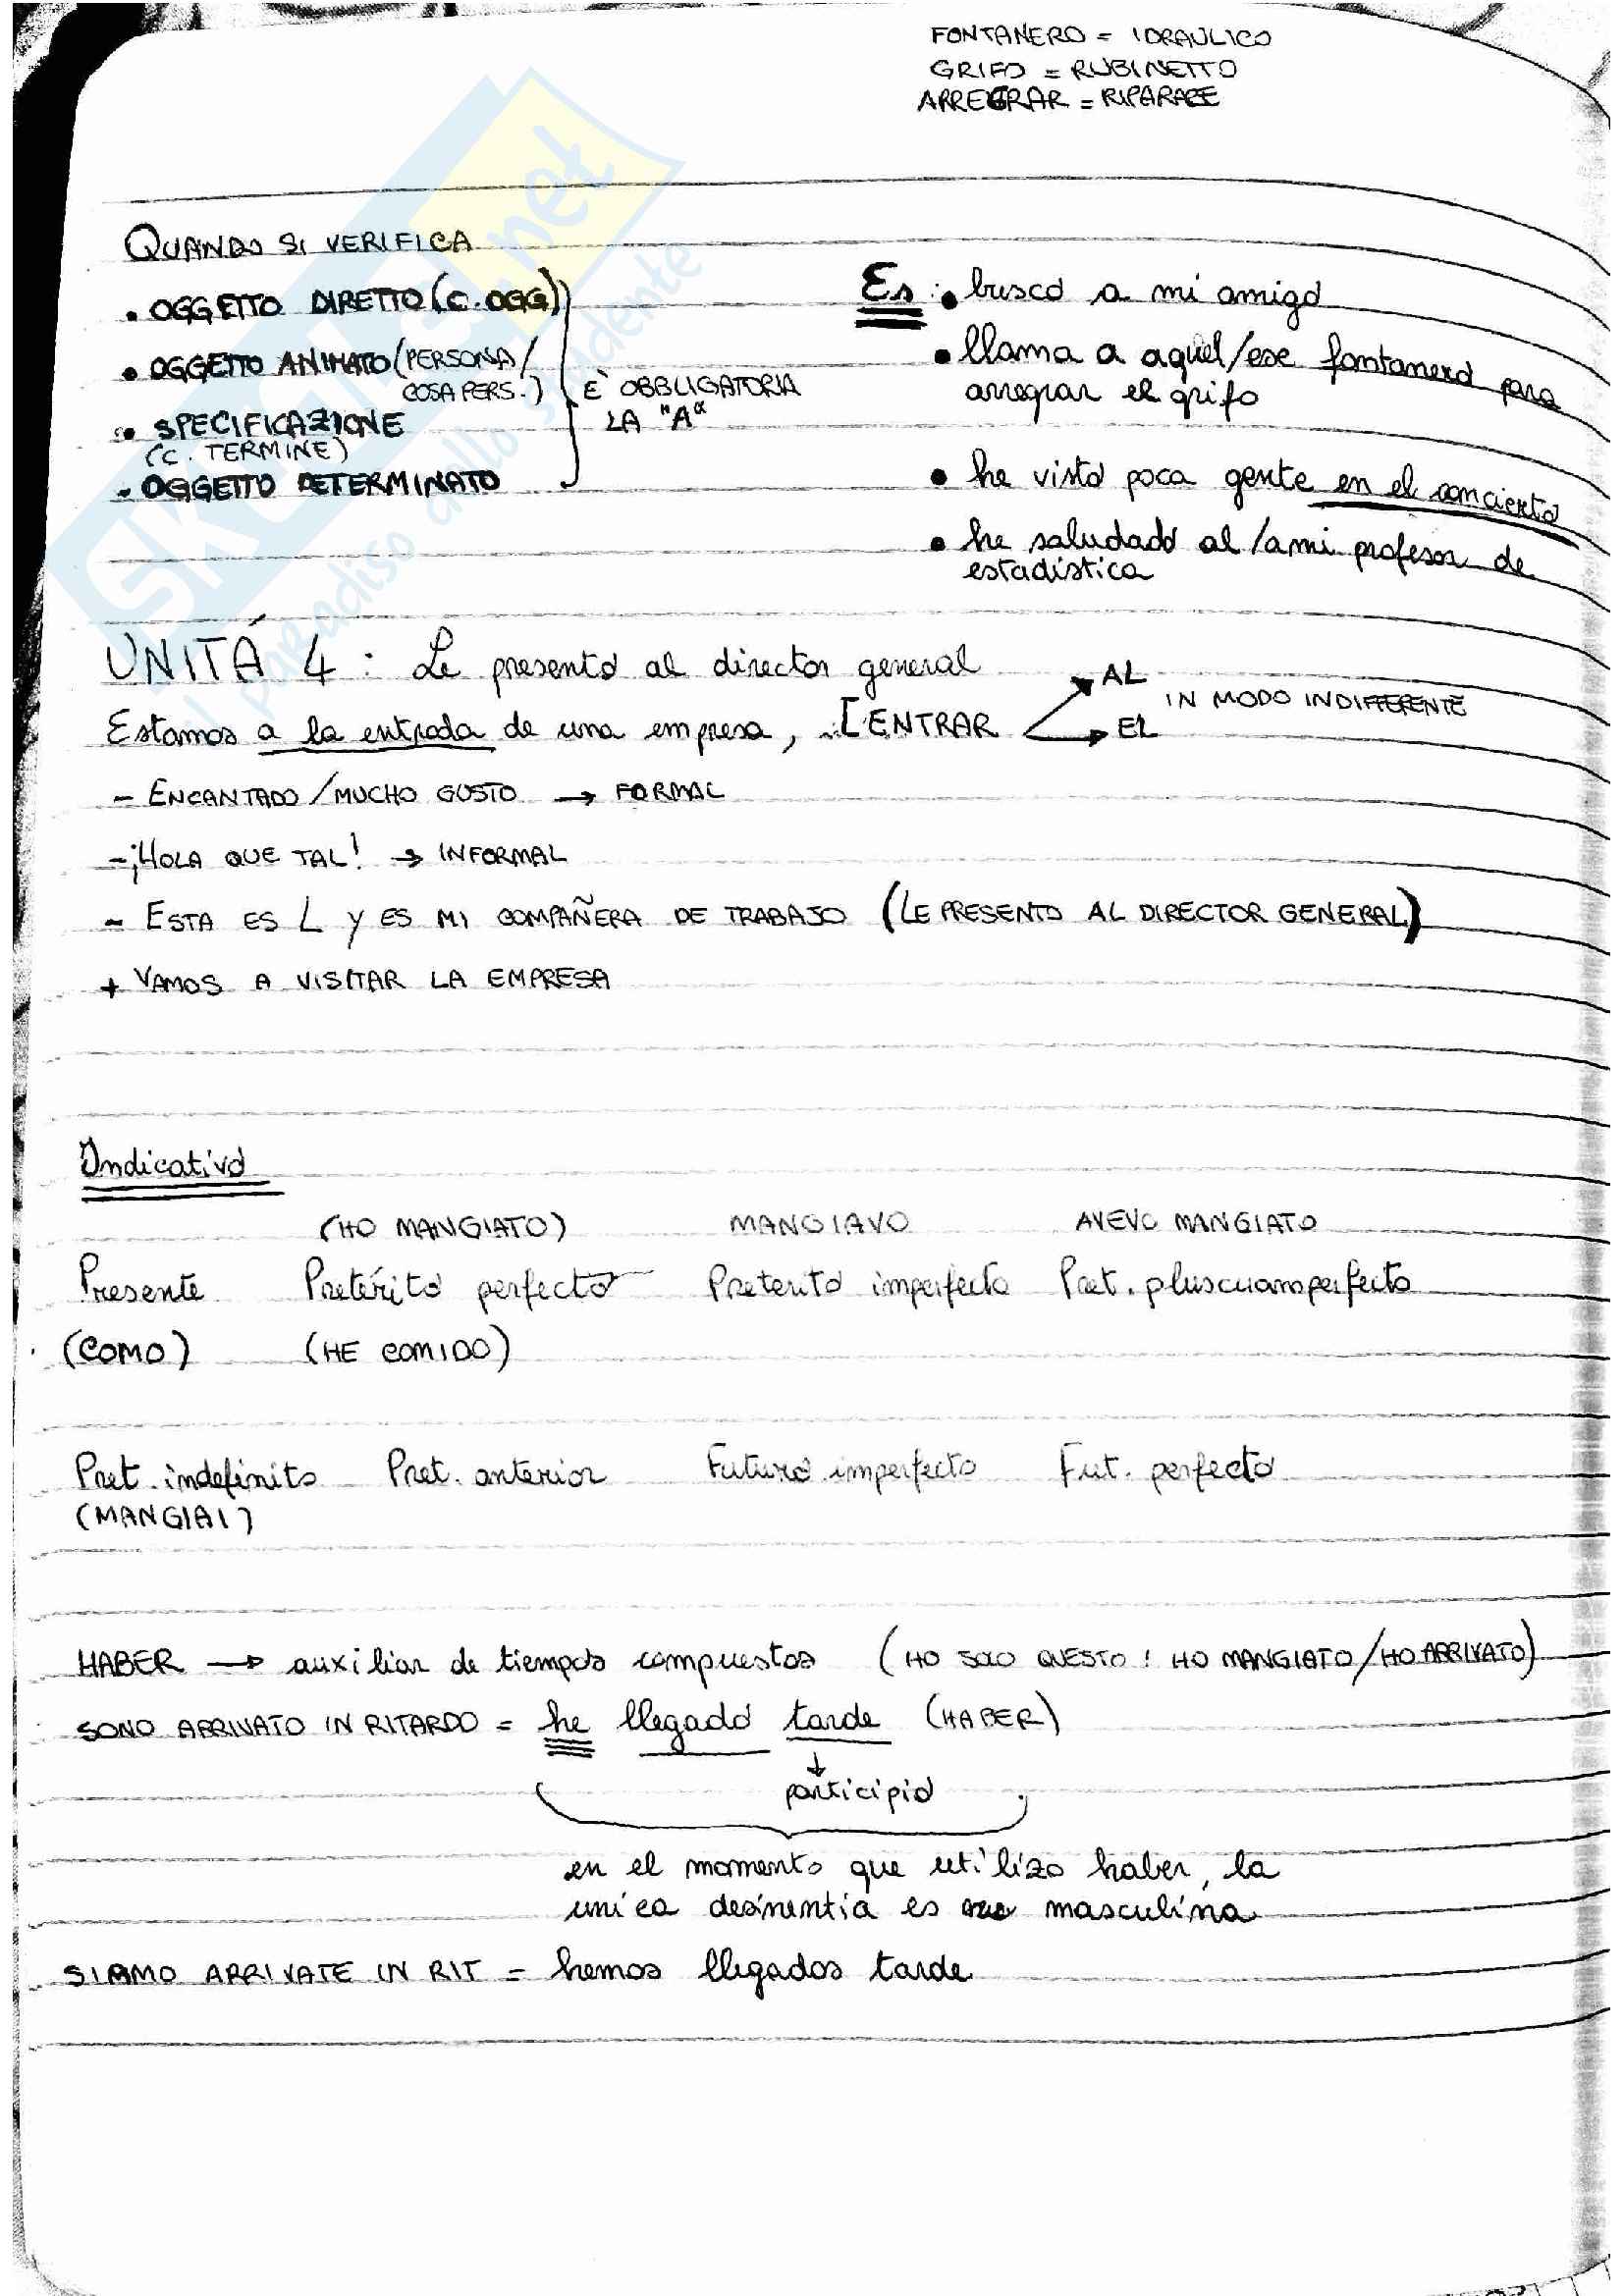 FONTANERO = IDRAULICO
GRIFO = RUBINETTO
ARREGRAR = RIPARARE
QUANDO SI VERIFICA
• OGGETTO DIRETTO (C. OGG)
• OGGETTO ANIMATO (PERSONA/
COSA PERS.)
• SPECIFICAZIONE
(C. TERMINE)
• OGGETTO DETERMINATO
È OBBLIGATORIA
LA "A"
Es: • busco a mi amigo
• llama a aquel/ese fontanero para
arregrar el grifo
• he visto poca gente en el concierto
• he saludado al /a mi profesor de
estadística
UNITÁ 4: Le presento al director general
Estamos a la entrada de una empresa, ..[ENTRAR
AL
EL
IN MODO INDIFFERENTE
- ENCANTADO/MUCHO GUSTO → FORMAL
- ¡HOLA QUE TAL! → INFORMAL
- ESTA ES L Y ES MI COMPAÑERA DE TRABAJO (LE PRESENTO AL DIRECTOR GENERAL)
+ VAMOS A VISITAR LA EMPRESA
Indicativo
(HO MANGIATO) MANGIAVO AVEVO MANGIATO
Presente Pretérito perfecto Preterito imperfecto Pret. pluscuamperfecto
(COMO) (HE COMIDO)
Pret. indefinito Pret. anterior Futuro imperfecto Fut. perfecto
(MANGIAI)
HABER → auxiliar de tiempos compuestos (HO SOLO QUESTO! HO MANGIATO/HO ARRIVATO)
SONO ARRIVATO IN RITARDO = he llegado tarde (HABER)
↓
participio
en el momento que utilizo haber, la
unica desinentia es masculina
SIAMO ARRIVATE IN RIT = hemos llegados tarde
SKUOLA.net
il paradiso dello studente